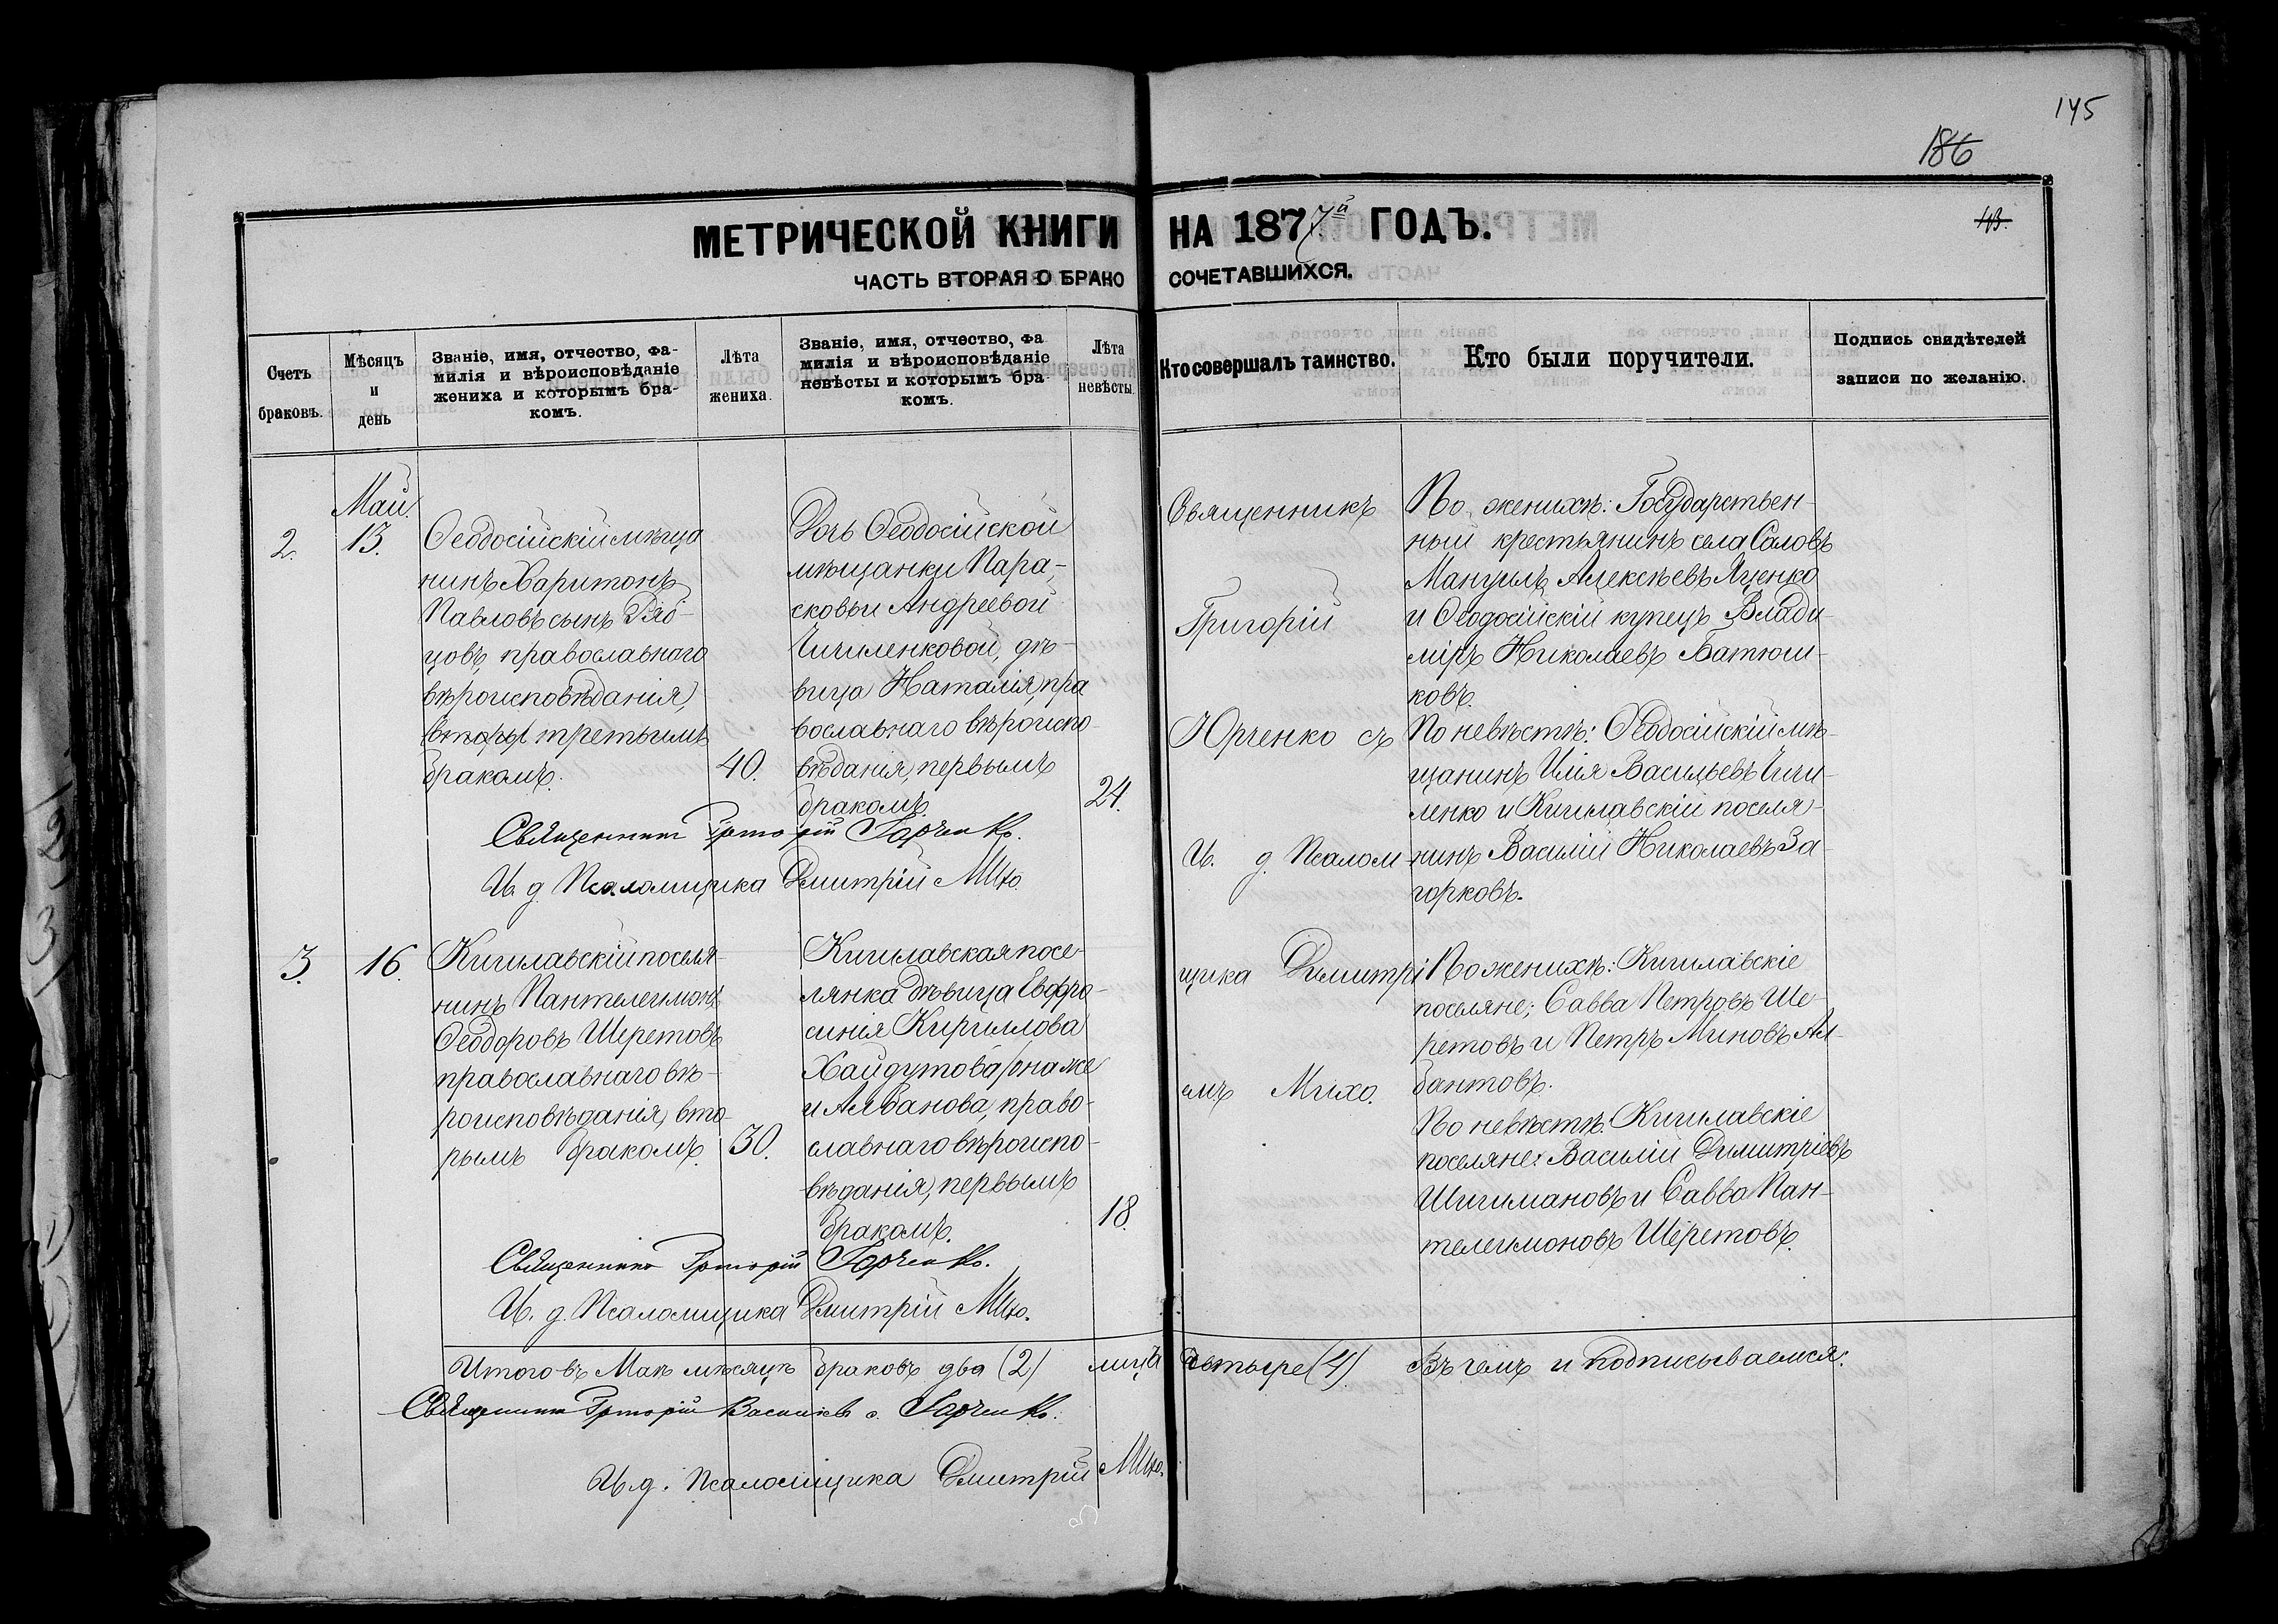 145
186
43.
МЕТРИЧЕСКОЙ КНИГИ НА 1877й ГОДЪ.
ЧАСТЬ ВТОРАЯ О БРАКОСОЧЕТАВШИХСЯ.
Счетъ браковъ.
Мѣсяцъ и день
Званіе, имя, отчество, фа-
милія и вѣроисповѣданіе
жениха и которымъ бра-
комъ.
Лѣта жениха.
Званіе, имя, отчество, фа
милія и вѣроисповѣданіе
невѣсты и которымъ бра-
комъ.
Лѣта невѣсты
Кто совершалъ таинство.
Кто были поручители.
Подпись свидѣтелей
записи по желанію.
2.
Май.
13.
Ѳеодосійскій мѣща
нинъ Харитонъ
Павловъ сынъ Ряб-
цовъ, православнаго
вѣроисповѣданія,
вторы третьимъ
бракомъ.
40.
Дочь Ѳеодосійской
мѣщанки Пара-
сковьи Андреевой
Чичиленковой, дѣ-
вица Наталія, пра
вославнаго вѣроиспо-
вѣданія, первымъ
бракомъ.
24.
Священникъ Григорій Юрченко.
И. д. Псаломщика Дмитрій Михо.
Священникъ
Григорій
Юрченко съ
И. д. Псалом-
щика Димитрі-
емъ Михо.
По женихѣ: Государствен-
ный крестьянинъ села Саловъ
Мануилъ Алексѣевъ Яценко
и Ѳеодосійскій купецъ Влади-
міръ Николаевъ Батюш-
ковъ.
По невѣстѣ: Ѳеодосійскій мѣ-
щанинъ Илія Васильевъ Чичи-
ленко и Кишлавскій поселя-
нинъ Василій Николаевъ За-
горковъ.
3.
16.
Кишлавскій поселя-
нинъ Пантелеимонъ
Ѳеодоровъ Шеретовъ
православнаго вѣ-
роисповѣданія, вто-
рымъ бракомъ.
30.
Кишлавская посе-
лянка дѣвица Евфро-
синія Кириллова
Хайдутова/она же
и Алванова, право-
славнаго вѣроиспо-
вѣданія, первымъ
бракомъ.
18.
Священникъ Григорій Юрченко.
И. д. Псаломщика Дмитрій Михо.
По женихѣ: Кишлавскіе
поселяне; Савва Петровъ Ше-
ретовъ и Петръ Миновъ Ал-
бантовъ.
По невѣстѣ: Кишлавскіе
поселяне: Василій Димитріевъ
Шишмановъ и Савва Пан-
телеимоновъ Шеретовъ.
Итого въ Маѣ мѣсяцѣ браковъ два (2) лицъ четыре (4). Въ чемъ и подписываемся:
Священникъ Григорій Васильевъ с. Юрченко.
И. д. Псаломщика Дмитрій Михо.